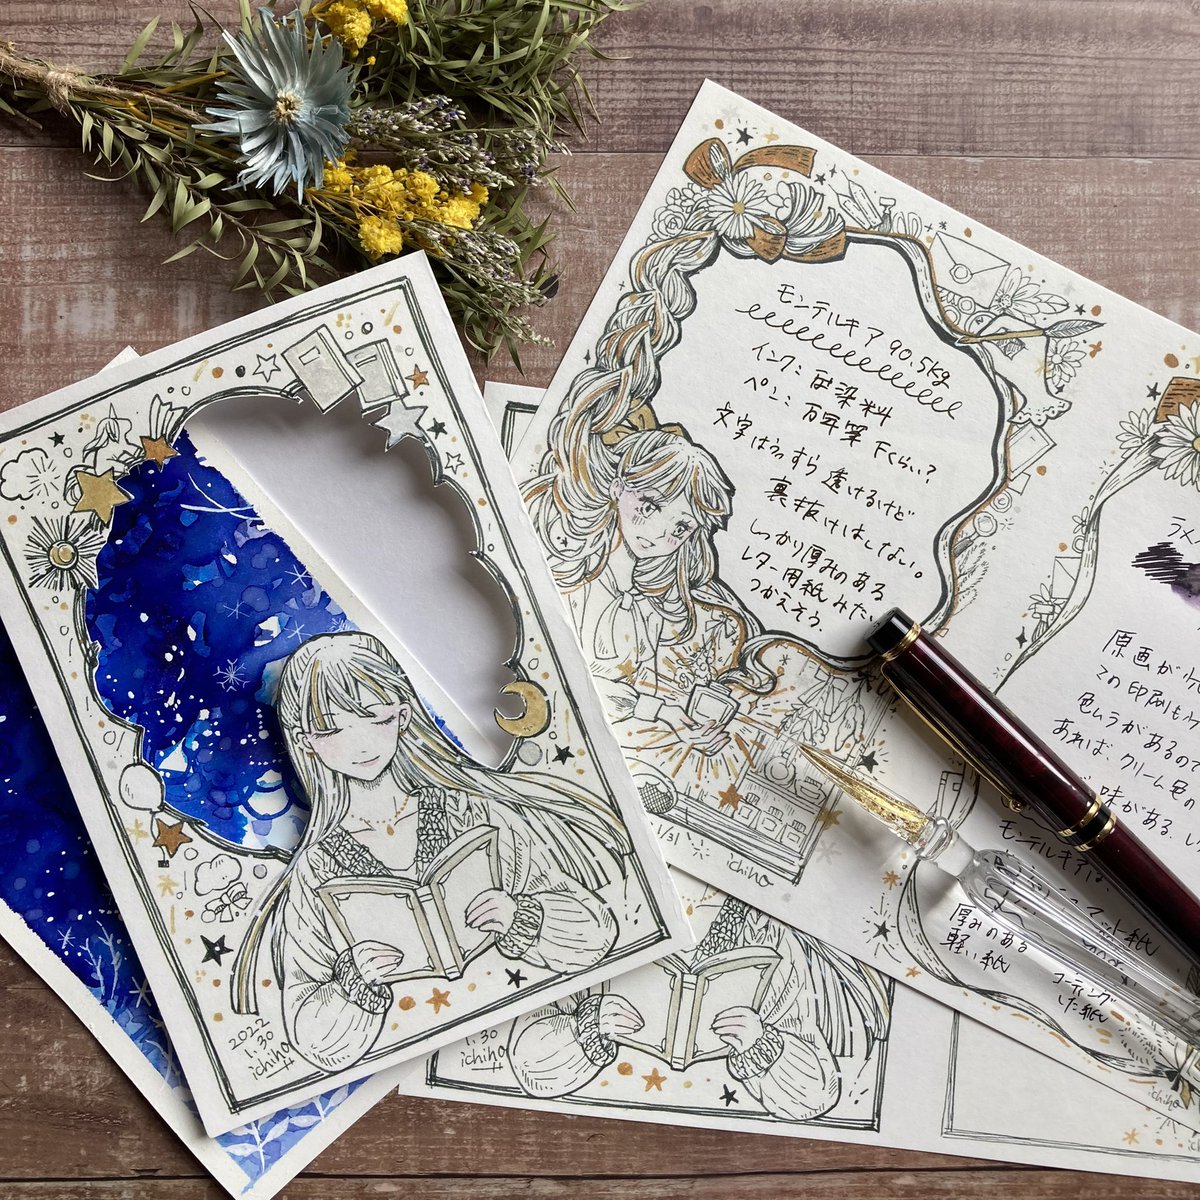 モンテルキア 90.5kg
インク: 古典染料
ペン: 万年筆 Fくらい?
文字はうっすら透けるけど
裏抜けはしない。
しっかり厚みのある
レター用紙みたい
つかえそう.
1/31
ichiho
2022
1.30
ichiho
1.30
ichiho
原画が
この印刷も
色ムラがあるので
あれば、クリーム色の
味がある.
モンテルキアは、
厚みのある
軽い紙
コーティング
した紙
ichiho